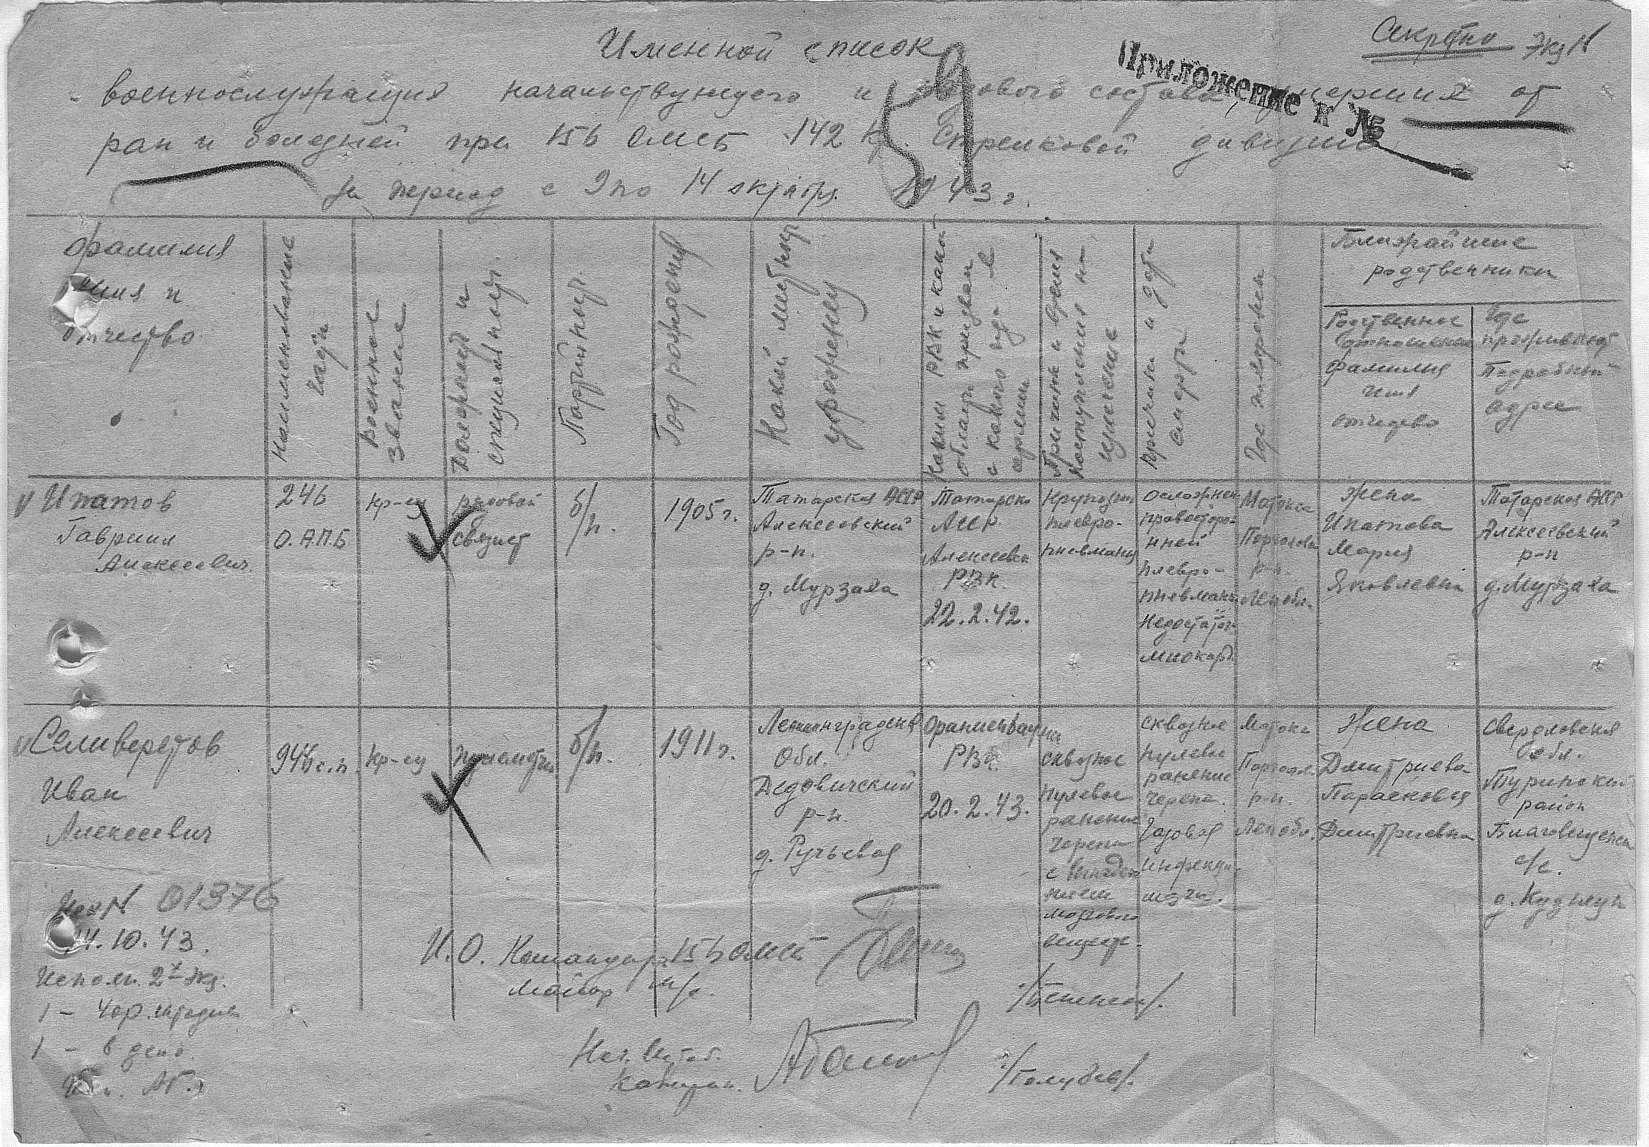 Секретно Экз N
Именной список
Приложение к №
военнослужащих начальствующего и рядового состава умерших от
ран и болезней при 156 ОМСБ 142 Кр. Стрелковой дивизии
за период с 9 по 14 октября 1943 г.
59
Фамилия
имя и
отчество
Наименование
части
Военное
звание
Должность и
специальность
Партийность
Год рождения
Какой местности
уроженец
Каким РВК и какой
области призван
с какого года в
армии
Причина и время
поступления на
лечение
Причина и дата
смерти
Где похоронен
Ближайшие
родственники
Родственное
отношение
фамилия
имя
отчество
Где
проживают
Подробный
адрес
Ипатов
Гавриил
Алексеевич
246
О.А.П.Б
кр-ец
рядовой
связист
б/п.
1905 г.
Татарская АССР
Алексеевский
р-н.
д. Мурзаха
Татарско
АССР
Алексеевск
РВК.
22.2.42.
Крупозная
плевро-
пневмония
осложнен
правосторо-
нней
плевро-
пневмонии
Недостаточ.
миокард.
Матокса
Парголов
р-н.
Лен обл.
жена
Ипатова
Мария
Яковлевна
Татарская АССР
Алексеевский
р-н
д. Мурзаха
Селиверстов
Иван
Алексеевич
946 с.п.
кр-ец
пулеметчик
б/п.
1911 г.
Ленинградская
Обл.
Дедовичский
р-н.
д. Ручьевая
Ораниенбаумск
РВК.
20.2.43.
сквозное
пулевое
ранение
черепа
с выпаде-
нием
мозгового
веществ.
сквозное
пулевое
ранение
черепа.
Газовая
инфекция
мозга.
Матокса
Парголов.
р-н.
Лен обл.
Жена
Дмитриева
Парасковья
Дмитриевна
Свердловская
обл.
Туринский
район
Благовещенск
с/с.
д. Кузнецы
Исх N 01376
14.10.43.
Исполн. 2х экз.
1 – в дело.
И.О. Командира 156 ОМСБ
майор м/с.
Нач. Штаб.
капитан.
/Голубев/.